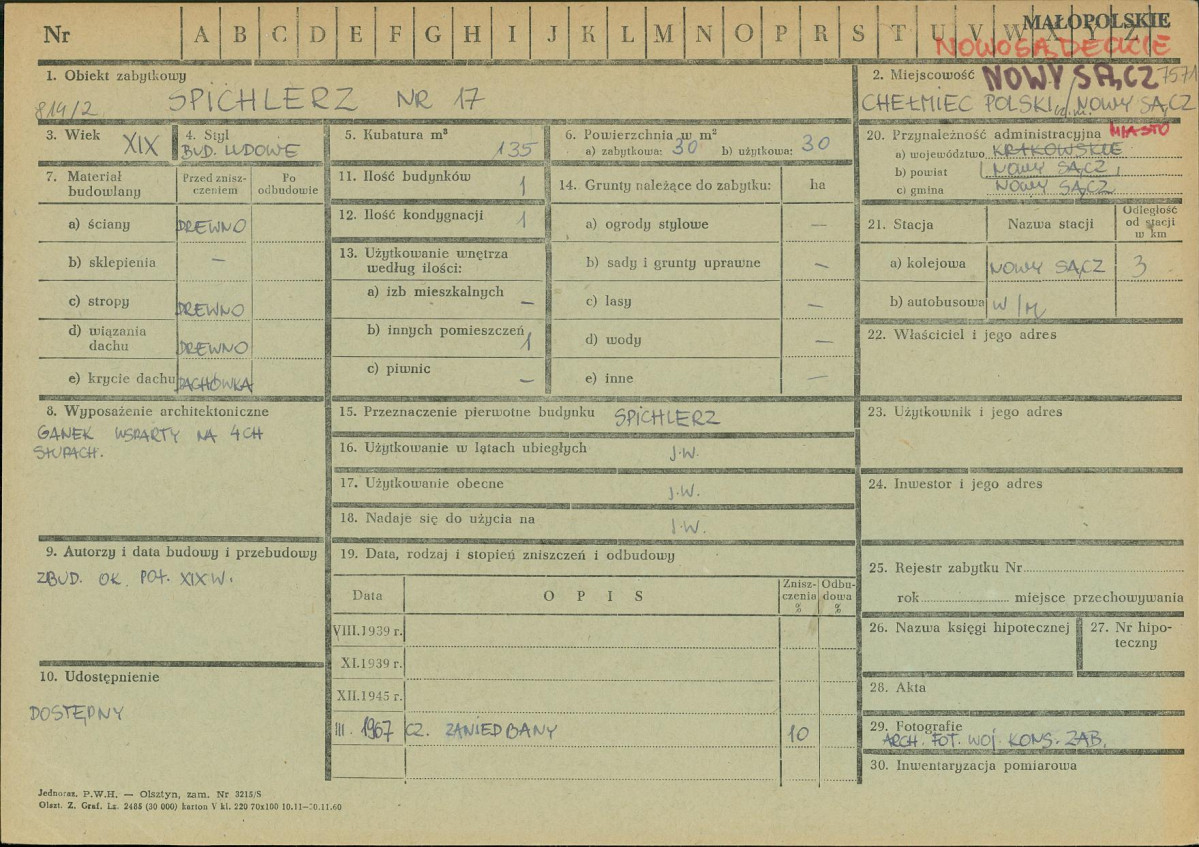 Nr A B C D E F G H I J K L M N O P R S T U V W X Y Z
MAŁOPOLSKIE
NOWOSĄDECKIE
1. Obiekt zabytkowy
819/2 SPICHLERZ NR 17
2. Miejscowość NOWY SĄCZ 7571
CHEŁMIEC POLSKI NOWY SĄCZ
3. Wiek XIX
4. Styl
BUD. LUDOWE
5. Kubatura m³
135
6. Powierzchnia w m²
a) zabytkowa: 30 b) użytkowa: 30
7. Materiał budowlany
Przed znisz-
czeniem
Po
odbudowie
a) ściany DREWNO
b) sklepienia —
c) stropy DREWNO
d) wiązania
dachu DREWNO
e) krycie dachu DACHÓWKA
8. Wyposażenie architektoniczne
GANEK WSPARTY NA 4CH
SŁUPACH.
9. Autorzy i data budowy i przebudowy
ZBUD. OK. POŁ. XIX W.
10. Udostępnienie
DOSTĘPNY
11. Ilość budynków 1
12. Ilość kondygnacji 1
13. Użytkowanie wnętrza
według ilości:
a) izb mieszkalnych —
b) innych pomieszczeń 1
c) piwnic —
14. Grunty należące do zabytku: ha
a) ogrody stylowe —
b) sady i grunty uprawne —
c) lasy —
d) wody —
e) inne —
15. Przeznaczenie pierwotne budynku SPICHLERZ
16. Użytkowanie w latach ubiegłych J.W.
17. Użytkowanie obecne J.W.
18. Nadaje się do użycia na J.W.
19. Data, rodzaj i stopień zniszczeń i odbudowy
Data OPIS Znisz-
czenia
% Odbu-
dowa
%
VIII.1939 r.
XI.1939 r.
XII.1945 r.
III. 1967 CZ. ZANIEDBANY 10
20. Przynależność administracyjna MIASTO
a) województwo KRAKOWSKIE
b) powiat NOWY SĄCZ
c) gmina NOWY SĄCZ
21. Stacja Nazwa stacji Odległość
od stacji
w km
a) kolejowa NOWY SĄCZ 3
b) autobusowa W/M
22. Właściciel i jego adres
23. Użytkownik i jego adres
24. Inwestor i jego adres
25. Rejestr zabytku Nr
rok miejsce przechowywania
26. Nazwa księgi hipotecznej
27. Nr hipo-
teczny
28. Akta
29. Fotografie
ARCH. FOT. WOJ. KONS. ZAB.
30. Inwentaryzacja pomiarowa
Jednoraz. P.W.H. — Olsztyn, zam. Nr 3215/S
Olszt. Z. Graf. Lz. 2485 (30 000) karton V kl. 220 70x100 10.11—30.11.60